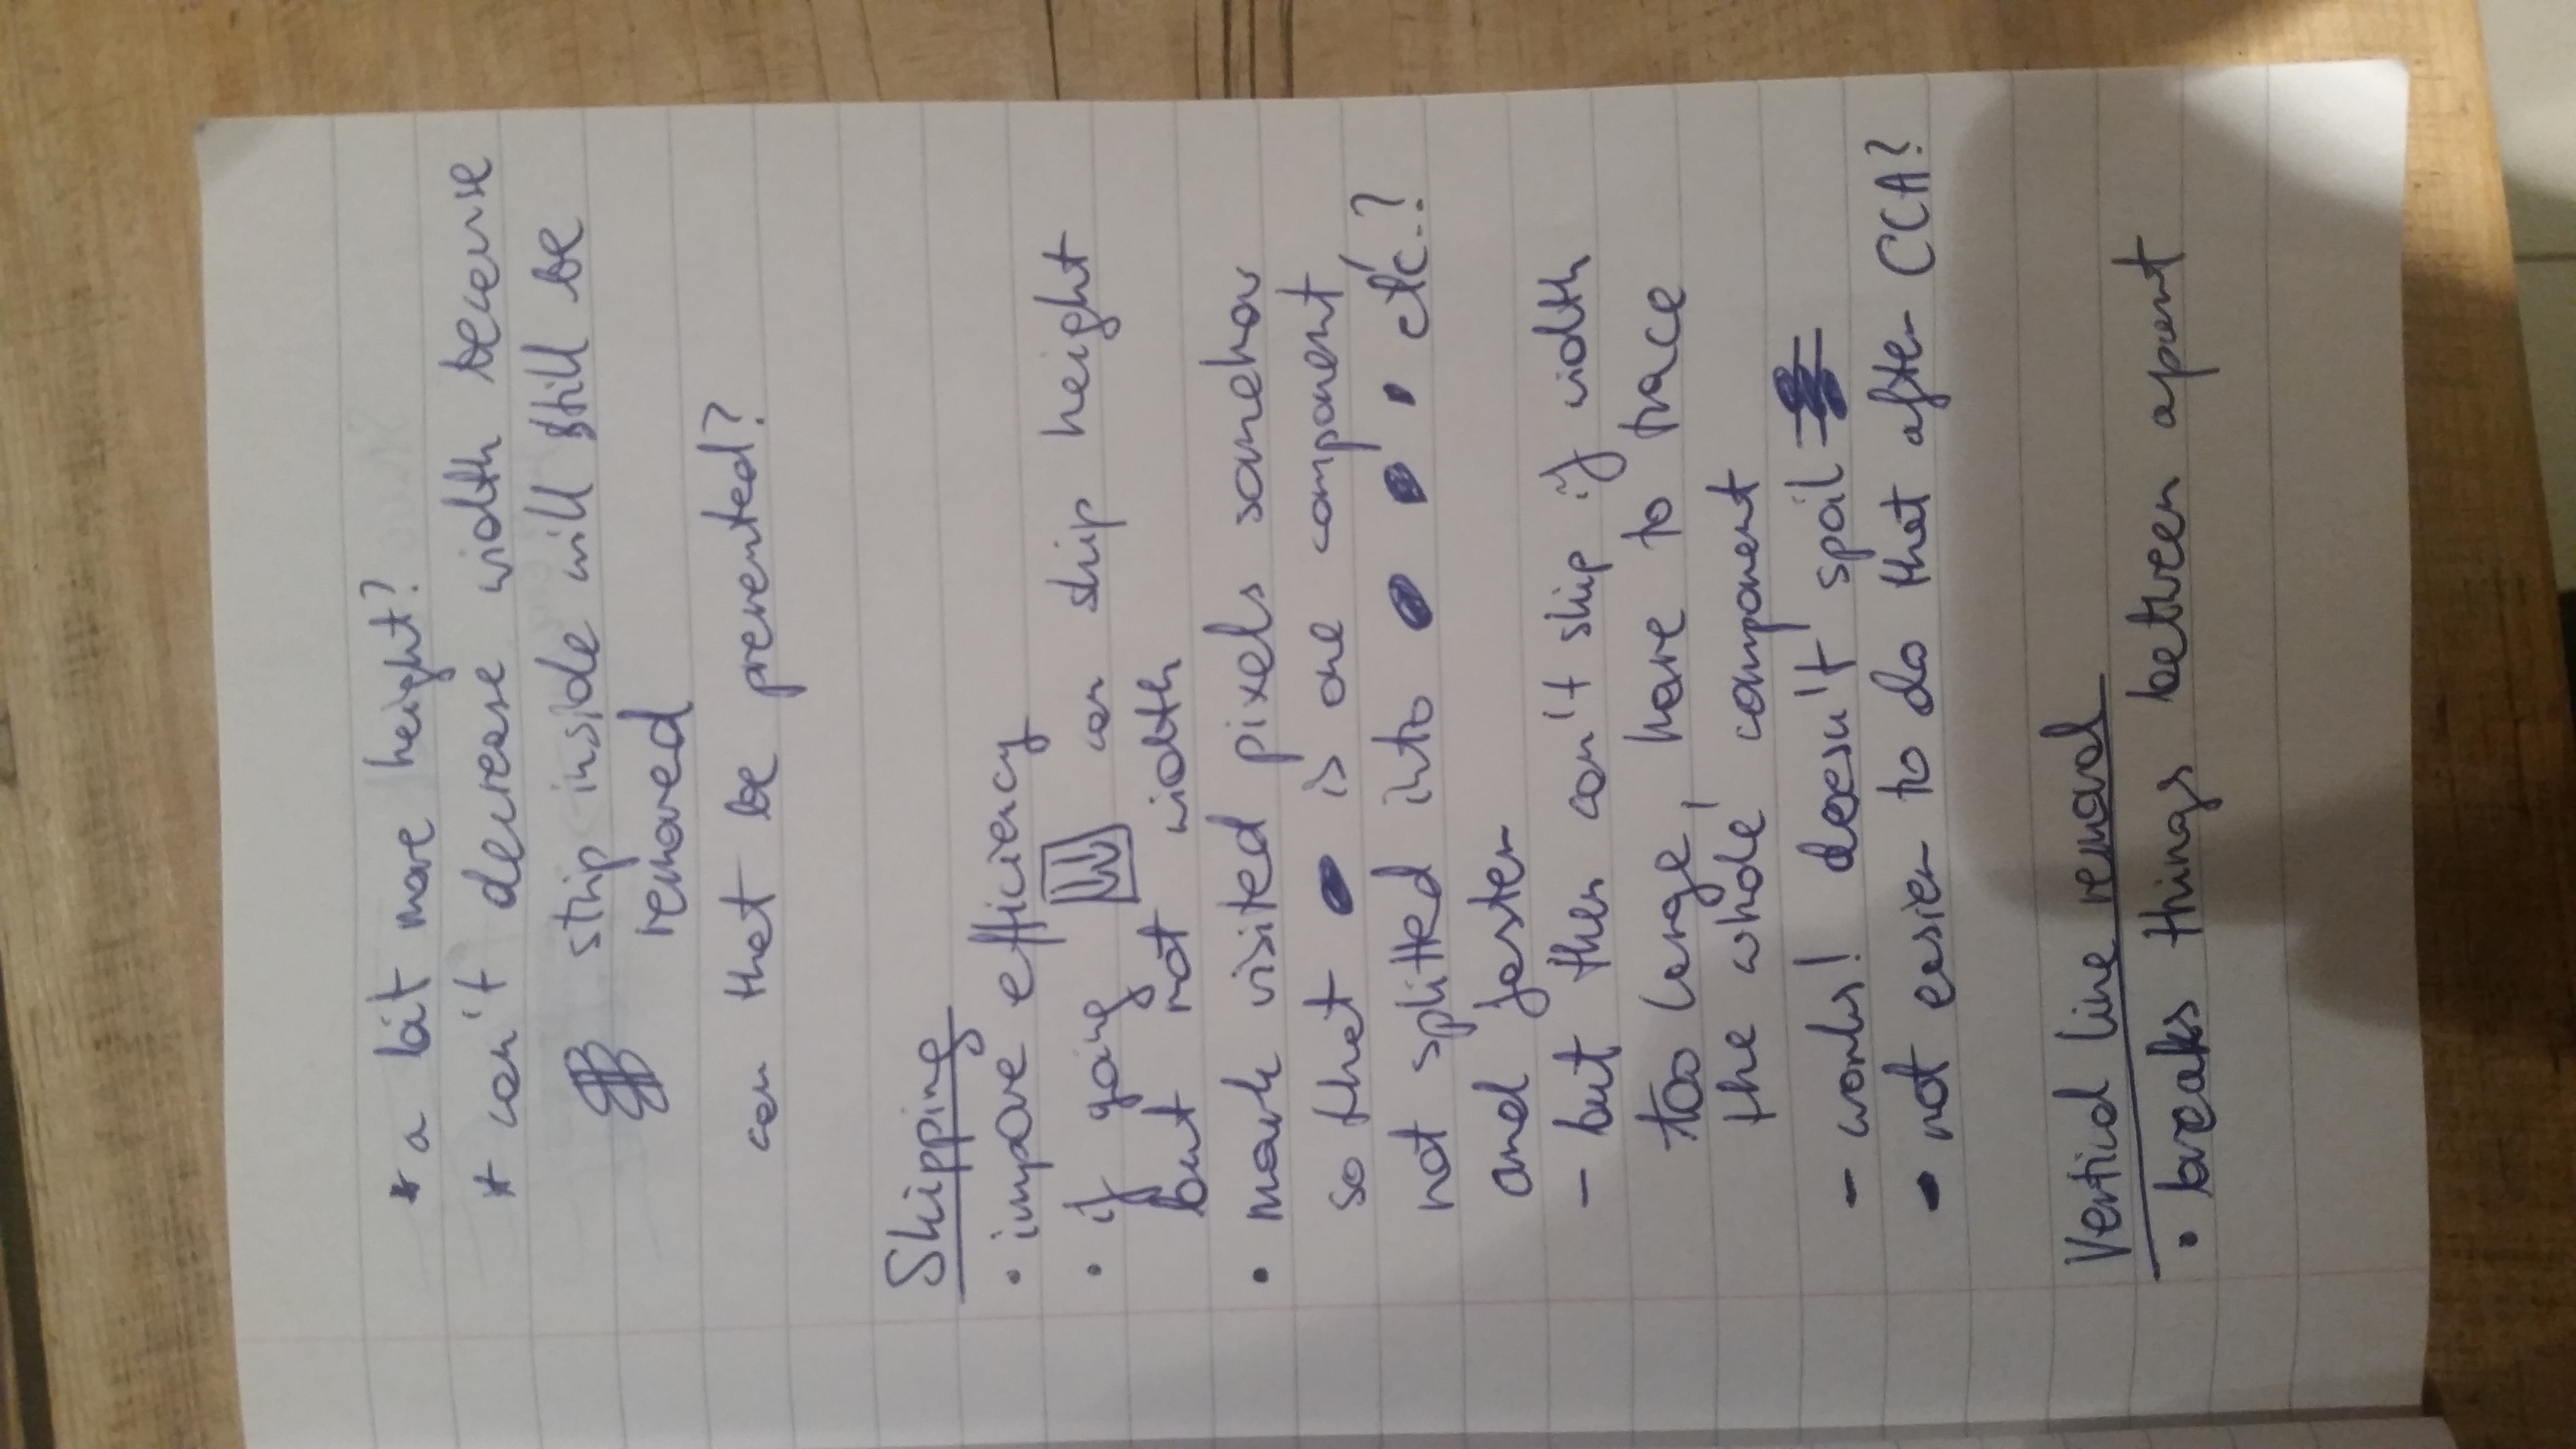 * a bit more height?
* can't decrease width because
strip inside will still be
removed
can that be prevented?
Skipping
• improve efficiency
• if going can skip height
but not width
• mark visited pixels somehow
so that is one component,
not splitted into etc.?
and faster
- but then can't skip if width
too large, have to trace
the whole component
- works! doesn't spoil
- not easier to do that after CCA?
Vertical line removal
• breaks things between apart